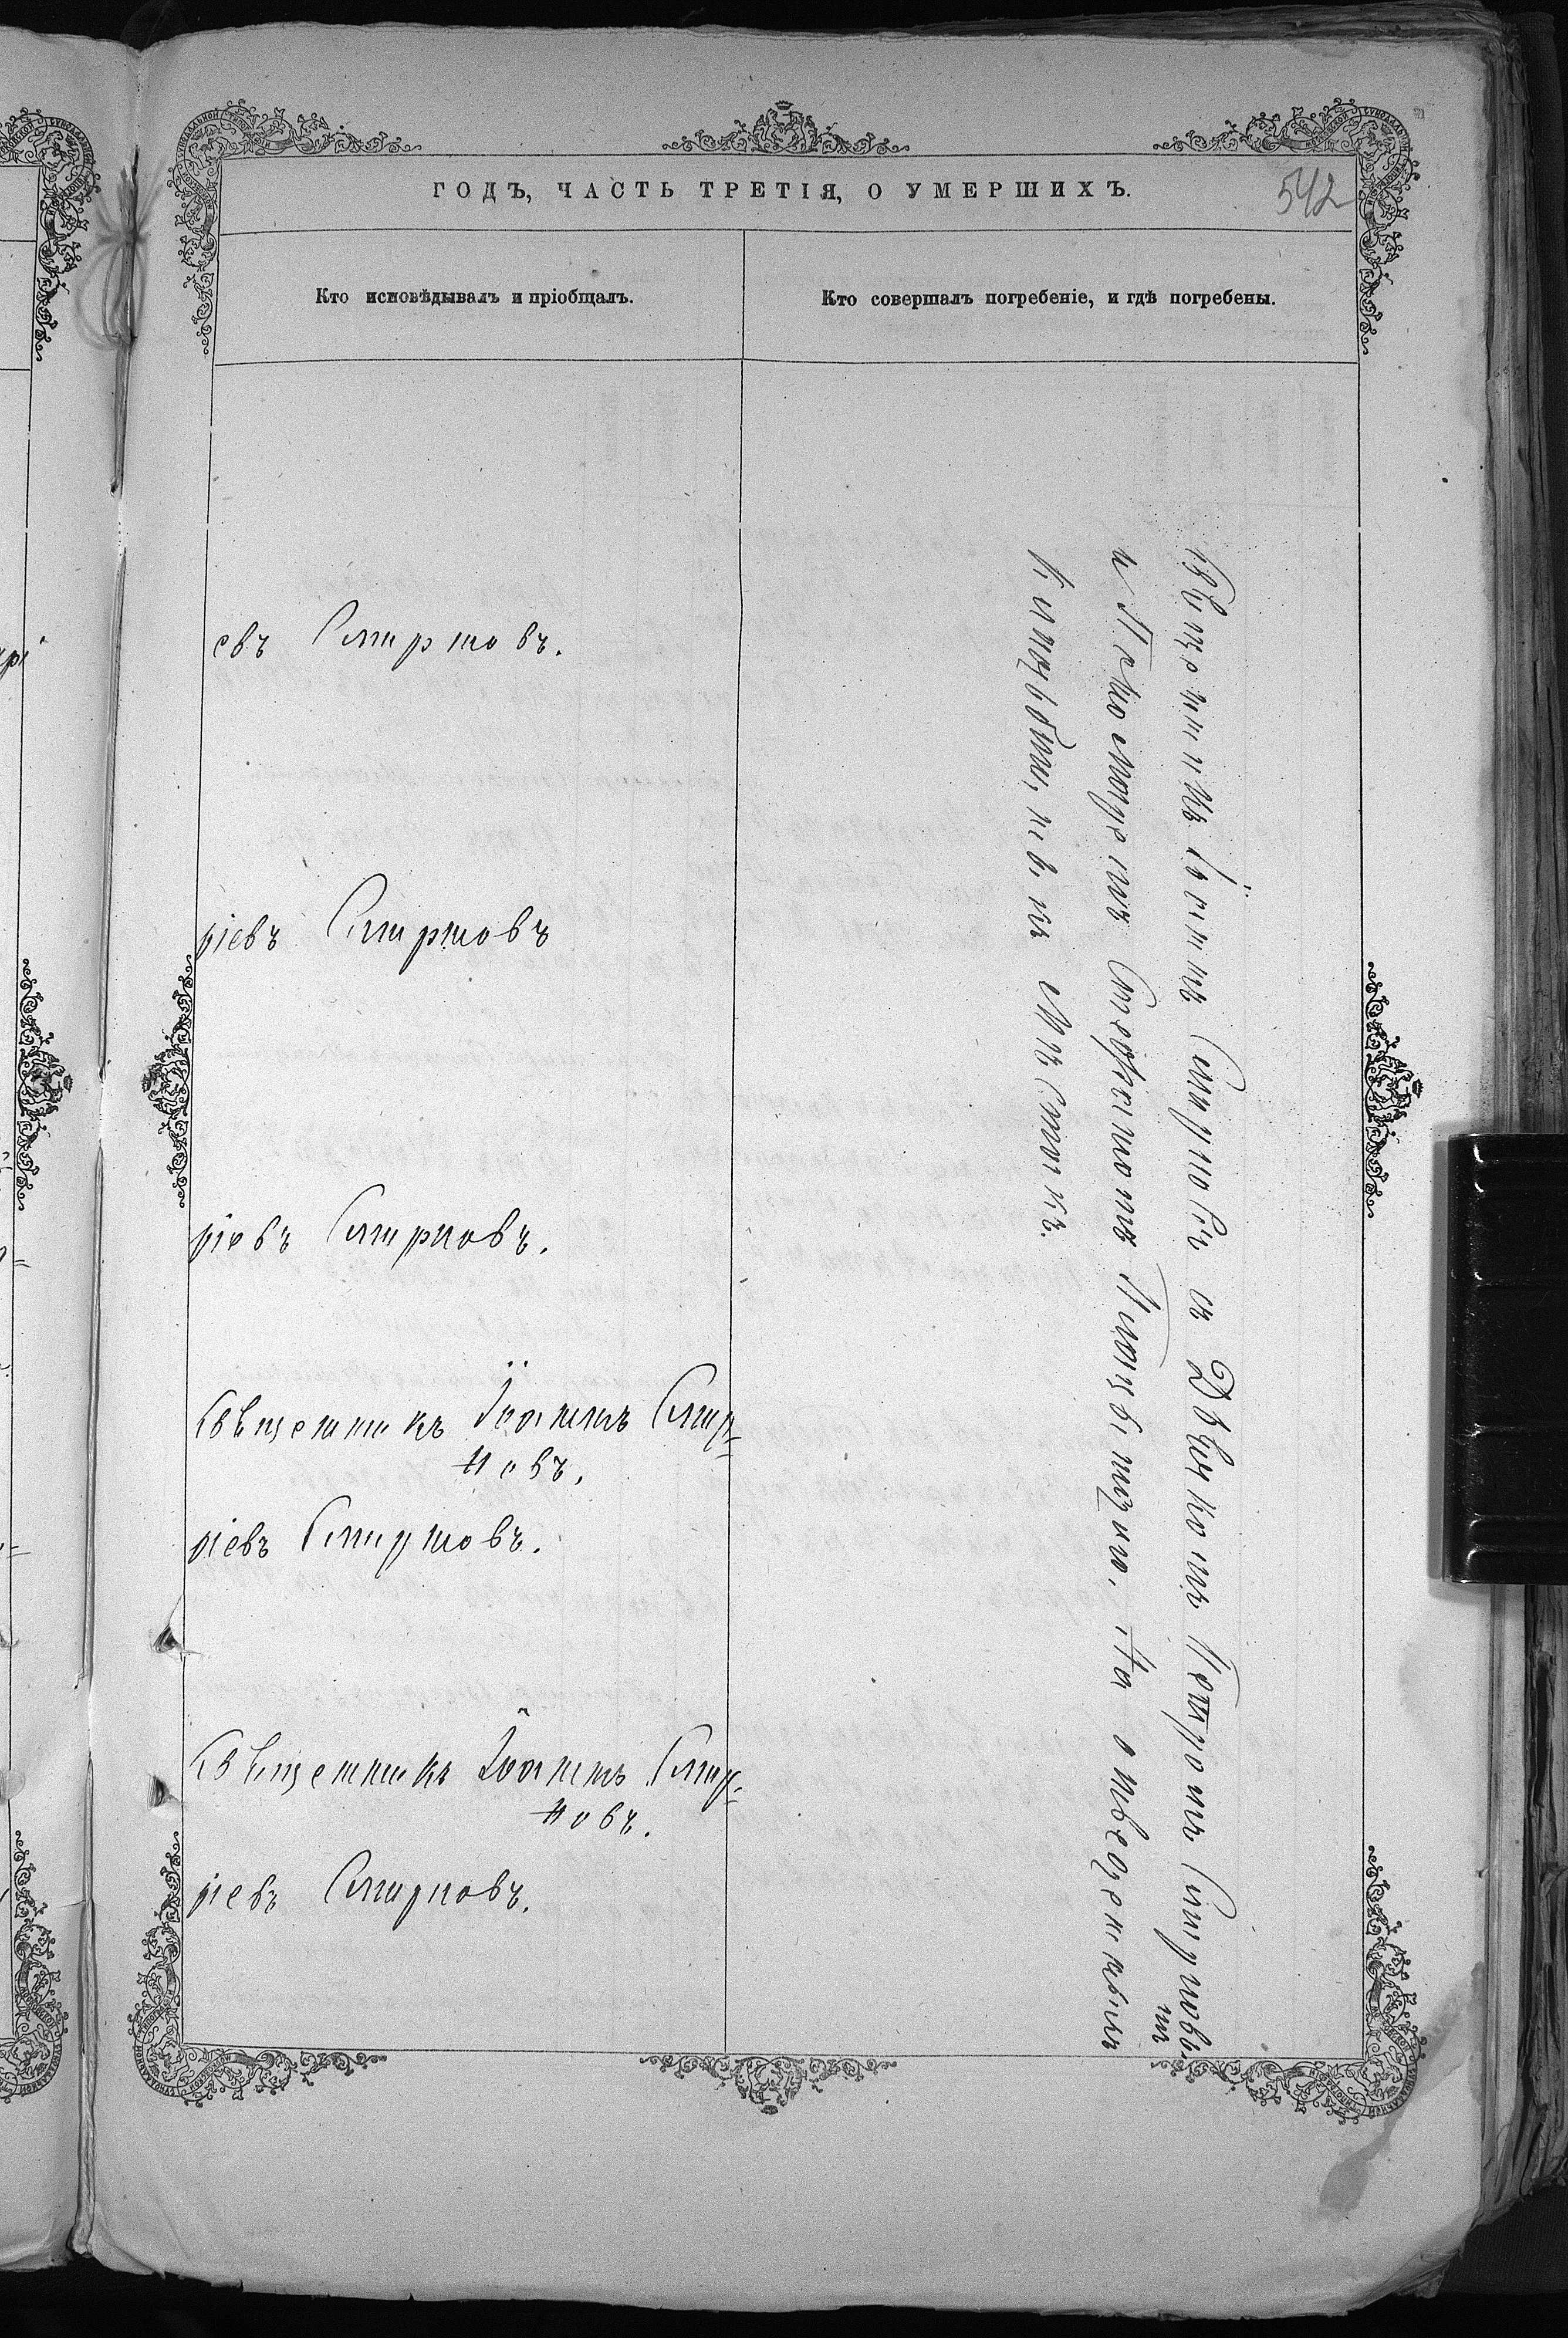 ГОДЪ, ЧАСТЬ ТРЕТІЯ, О УМЕРШИХЪ.
542
Кто исповѣдывалъ и пріобщалъ.
Кто совершалъ погребеніе, и гдѣ погребены.
евъ Смирновъ.
ріевъ Смирновъ
ріевъ Смирновъ.
Священникъ Іоаннъ Смир=
новъ.
ріевъ Смирновъ.
Священникъ Іоаннъ Смир=
новъ.
ріевъ Смирновъ.
Священникъ Іоаннъ Смирновъ съ Дьякономъ Петромъ Смирновы
мъ
и Псаломщикомъ На отведенномъ
кладбищѣ